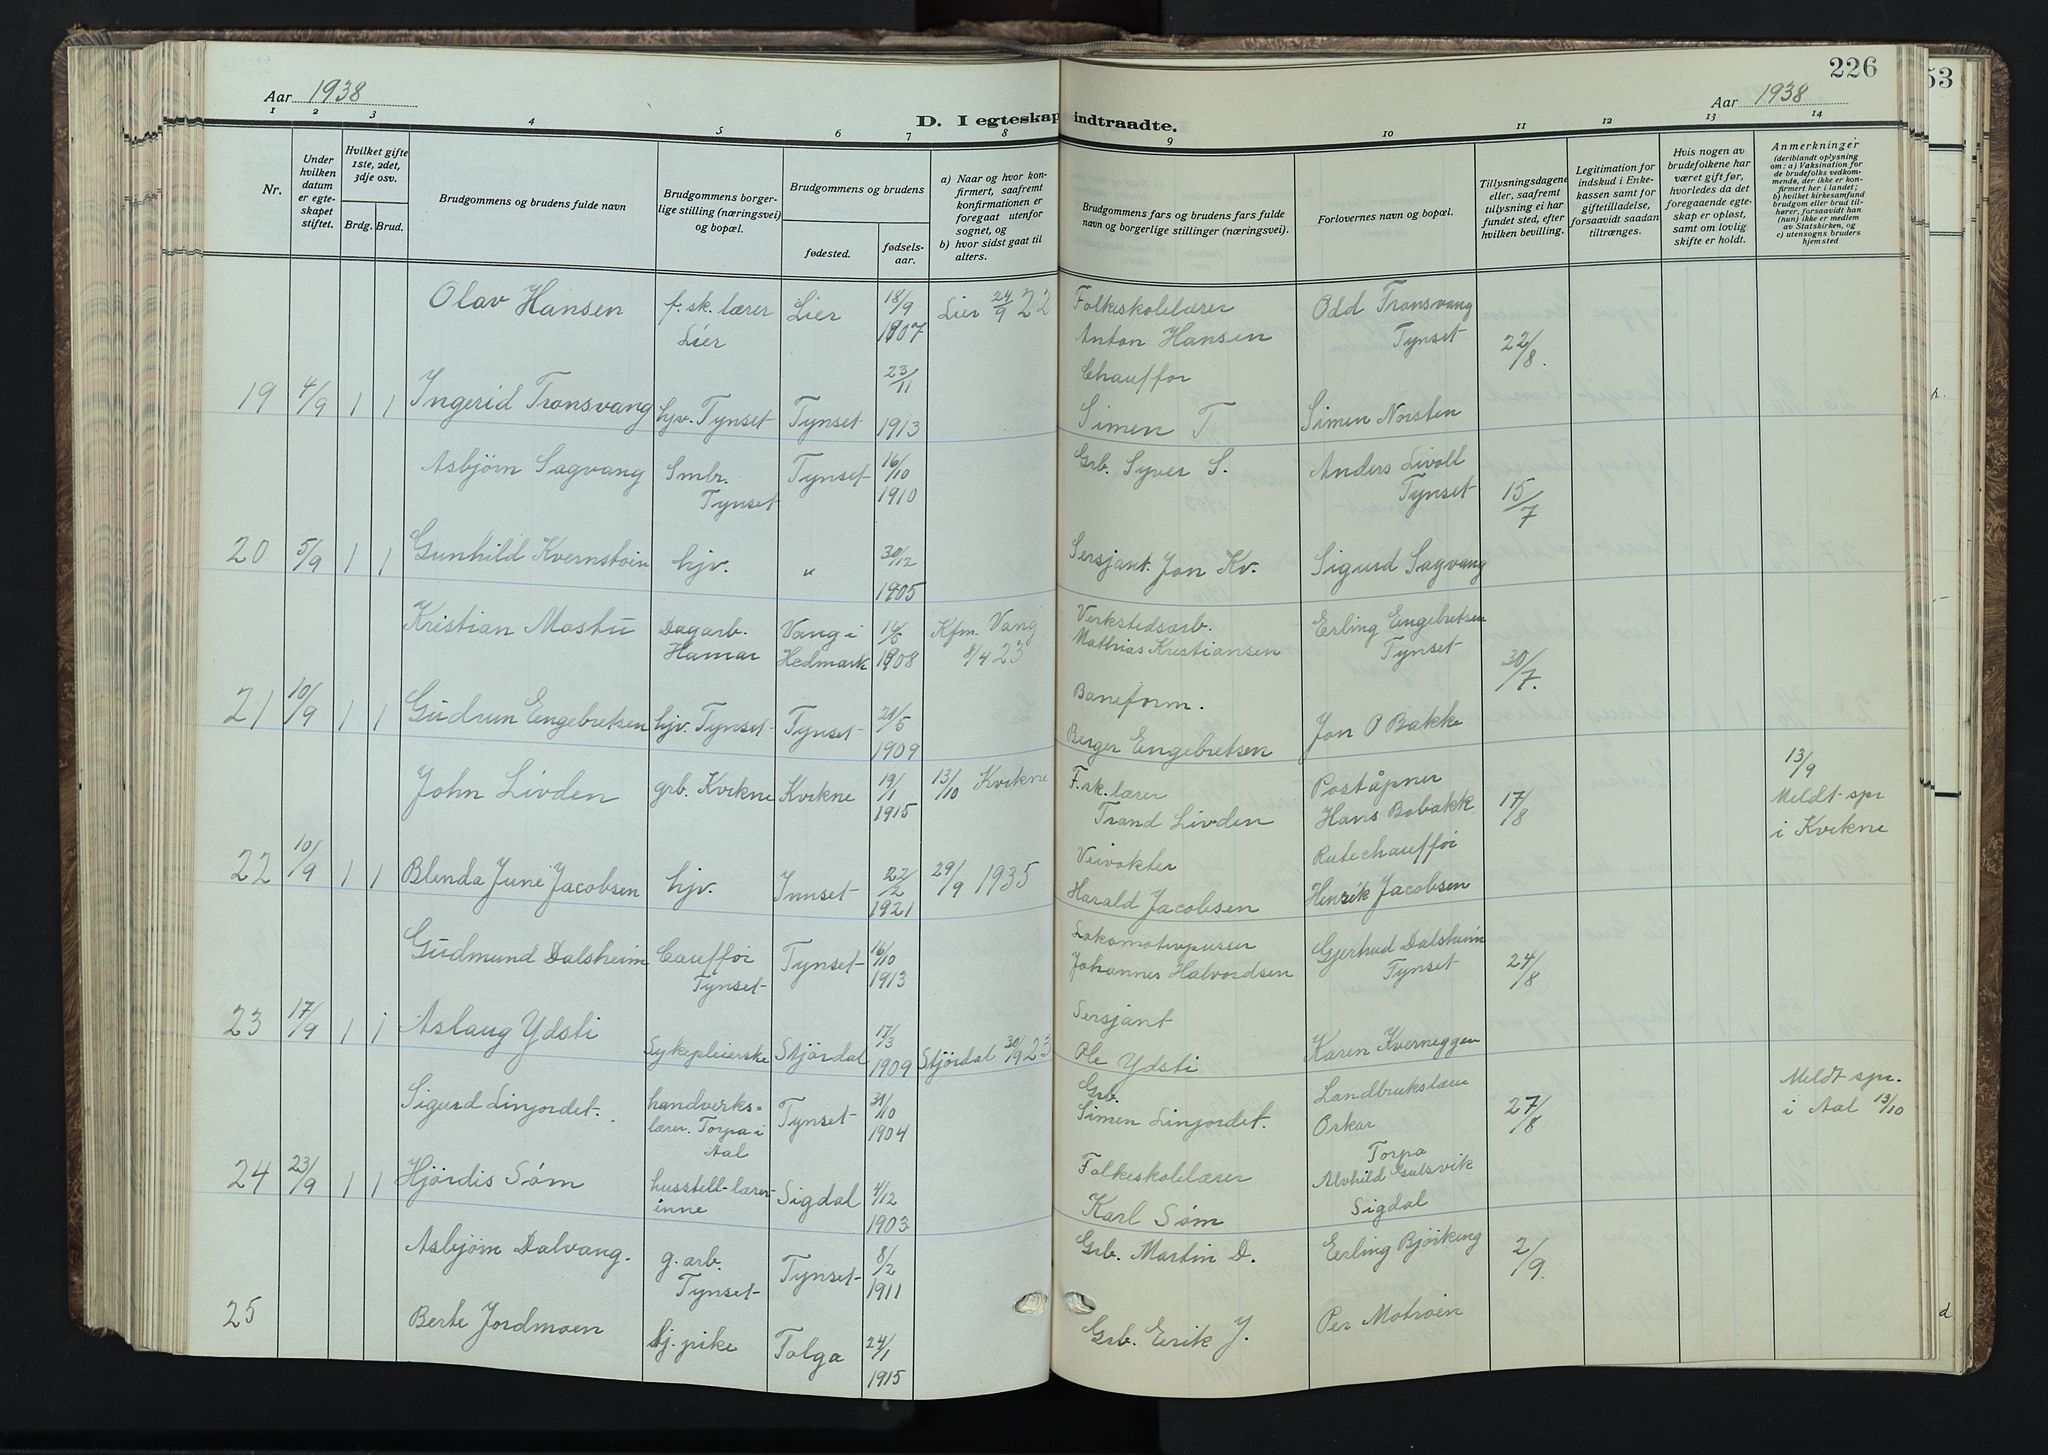 226
53
Aar 1938
Aar 1938
D. I egteskap indtraadte.
1 2 3 4 5 6 7 8 9 10 11 12 13 14
Nr.
Under hvilken datum er egteskapet stiftet.
Hvilket gifte 1ste, 2det, 3dje osv.
Brdg. Brud.
Brudgommens og brudens fulde navn
Brudgommens borgerlige stilling (næringsvei) og bopæl.
Brudgommens og brudens
fødested.
fødselsaar.
a) Naar og hvor konfirmert, saafremt konfirmationen er foregaat utenfor sognet, og
b) hvor sidst gaat til alters.
Brudgommens fars og brudens fars fulde navn og borgerlige stillinger (næringsvei).
Forlovernes navn og bopæl.
Tillysningsdagene eller, saafremt tillysning ei har fundet sted, efter hvilken bevilling.
Legitimation for indskud i Enkekassen samt for giftetilladelse, forsaavidt saadan tiltrænges.
Hvis nogen av brudefolkene har været gift før, hvorledes da det foregaaende egteskap er opløst, samt om lovlig skifte er holdt.
Anmerkninger
(deriblandt oplysning om: a) Vaksination for de brudefolks vedkommende, der ikke er konfirmert her i landet; b) hvilket kirkesamfund brudgom eller brud tilhører, forsaavidt han (hun) ikke er medlem av Statskirken, og c) utensogns bruders hjemsted
Olav Hansen f. sk. lærer Lier Lier 18/9 1907 Lier 24/9 22 Folkeskolelærer Anton Hansen Odd Tronsvang Tynset 22/8.
19 4/9 1 1 Ingerid Tronsvang hjv. Tynset Tynset 23/11 1913 Chauffør Simen T Simen Norsten
Asbjørn Sagvang Smbr. Tynset Tynset 16/10 1910 Grb. Syver S. Anders Livoll Tynset 15/7
20 5/9 1 1 Gunhild Kvernstøin hjv. " 30/12 1905 Sersjant Jon Kv. Sigurd Sagvang
Kristian Mastu Dagarb. Hamar Vang i Hedmark 1908 Kfm. Vang 8/4 23 Verkstedsarb. Mathias Kristiansen Erling Engebretsen Tynset 30/7.
21 10/9 1 1 Gudrun Engebretsen hjv. Tynset Tynset 21/5 1909 Baneform. Berger Engebretsen Jon O Bakke
John Livden grb. Kvikne Kvikne 19/1 1915 13/10 Kvikne F. sk. lærer Trond Livden Poståpner Hans Bobakk 17/8 13/9 Meldt spr i Kvikne
22 10/9 1 1 Blenda June Jacobsen hjv. Innset 22/2 1921 29/9 1935 Veivokter Harald Jacobsen Rutechauffør Henrik Jacobsen
Gudmund Dalsheim Cauffør Tynset Tynset 16/10 1913 Lokomotivpusser Johannes Halvordsen Gjertrud Dalsheim Tynset 24/8
23 17/9 1 1 Aslaug Ydsti Sykepleierske Stjørdal 17/3 1909 Stjørdal 30/9 23 Sersjant Ole Ydsti Karen Kverneggen
Sigurd Linjordet. handverkslærer. Torpa i Aal Tynset 31/10 1904 Grb. Simen Linjordet. Landbrukslærer Oskar Torpa 27/8 Meldt spr. i Aal 13/10
24 23/9 1 1 Hjørdis Søm husstell-lærerinne Sigdal 4/12 1903 Folkeskolelærer Karl Søm Alvhild Gulsvik Sigdal
Asbjørn Dalvang. g. arb. Tynset Tynset 8/2 1911 Grb. Martin D. Erling Bjørkeng 2/9.
25 Berte Jordmoen hj. pike Tolga 24/1 1915 Grb. Eirik J. Per Motrøen